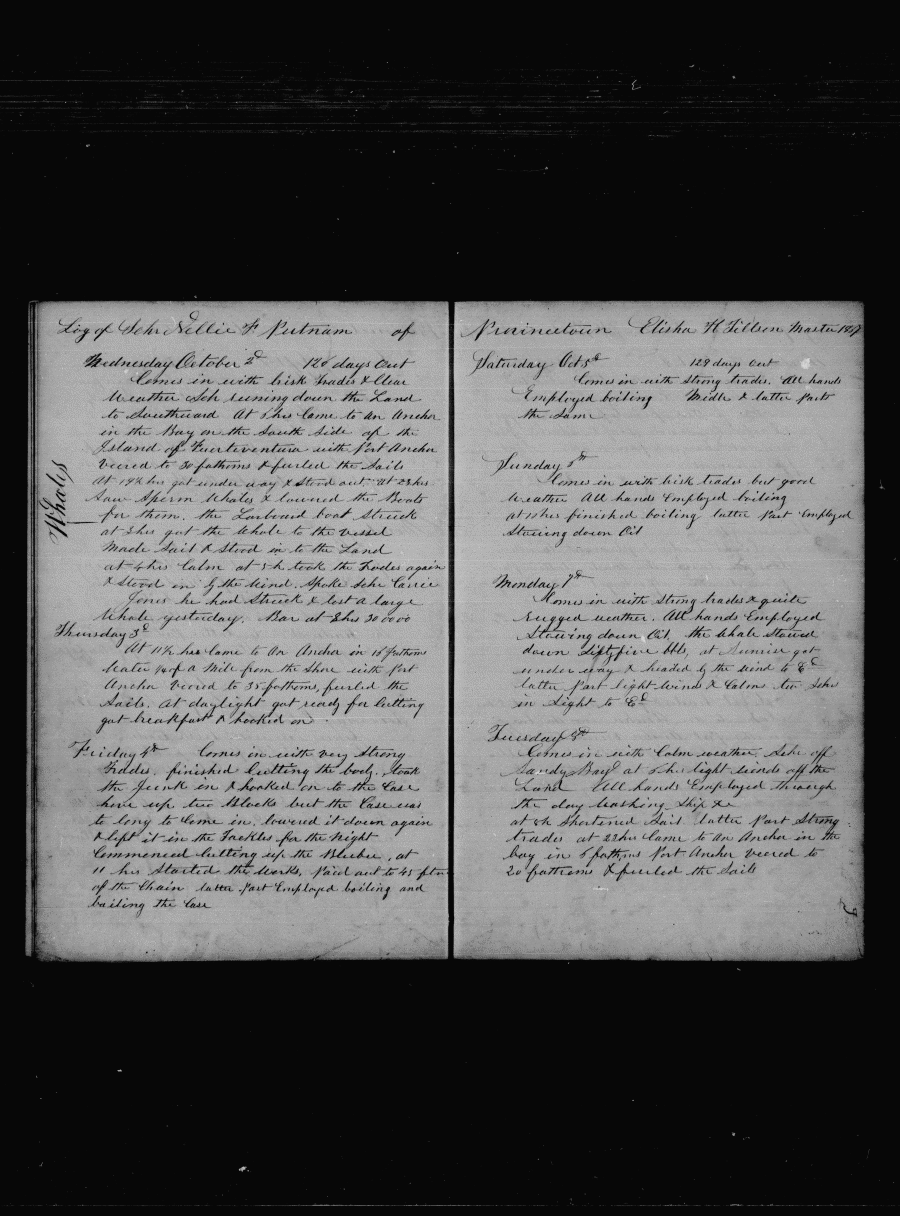 Log of Schr Nellie F Putnam of
Wednesday October 2d 126 days Out
Comes in with brisk trades & Clear
Weather Sch runing down the Land
to Southward At 5 hrs Came to An Anchor
in the Bay on the South Side of the
Island of Fuerteventura with Port Anchor
veered to 30 fathoms & furled the Sails
At 19½ hrs got under way & Stood out. at 23 hrs
Saw Sperm Whales & lowered the Boats
for them. the Larboard boat Struck
at 3 hrs got the Whale to the vessel
Made Sail & Stood in to the Land
at 4 hrs Calm at 5 h took the trades again
& Stood in by the Wind. Spoke Schr Carrie
Jones he had Struck & lost a large
Whale yesterday. Bar at 2 hrs 30 00 00
Whales
Thursday 3d
At 11½ hrs Came to An Anchor in 18 fathoms
Water ¼ of A Mile from the Shore with Port
Anchor Veered to 35 fathoms, furled the
Sails. At daylight got ready for Cutting
got breakfast & hooked on
Friday 4th Comes in with very Strong
trades. finished Cutting the body. took
the Junk in & hooked on to the Case
hove up two Blocks but the Case was
to long to Come in, lowered it down again
& left it in the Tackles for the Night
Commenced Cutting up the Blubber, at
11 hrs Started the Works. Paid out to 45 ftms
of the Chain latter Part Employed boiling and
bailing the Case
Provincetown Elisha H Tillson Master
Saturday Oct 5th 129 days Out
Comes in with Strong trades. All hands
Employed boiling Middle & latter Part
the Same
Sunday 6th
Comes in with brisk trades but good
Weather All hands Employed boiling
at 10 hrs finished boiling latter Part Employed
Stowing down Oil
Monday 7th
Comes in with Strong trades & quite
rugged weather. All hands Employed
Stowing down Oil, the Whale Stowed
down Sixtyfive bbls, at Sunrise got
under way & headed by the wind to Ed
latter Part light Winds & Calms two Schrs
in Sight to Ed
Tuesday 8th
Comes in with Calm weather. Schr off
Sandy Bay at 6 hr light winds off the
Land All hands Employed through
the day Washing Ship &c
at 8h Shortened Sail latter Part Strong
trades at 22 hrs Came to An Anchor in the
bay in 6 fathoms Port Anchor veered to
20 fathoms & furled the Sails